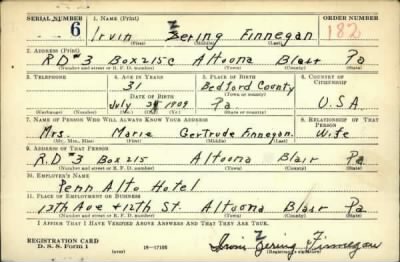 SERIAL NUMBER 1. NAME (Print) ORDER NUMBER
6 Irvin Zering Finnegan 182
(First) (Middle) (Last)
2. ADDRESS (Print)
R.D #3 Box 215C Altoona Blair Pa
(Number and street or R. F. D. number) (Town) (County) (State)
3. TELEPHONE 4. AGE IN YEARS 5. PLACE OF BIRTH 6. COUNTRY OF CITIZENSHIP
31 Bedford County
DATE OF BIRTH (Town or county)
July 1909 Pa U.S.A.
(Exchange) (Number) (Mo.) (Day) (Yr.) (State or country)
7. NAME OF PERSON WHO WILL ALWAYS KNOW YOUR ADDRESS 8. RELATIONSHIP OF THAT PERSON
Mrs. Marie Gertrude Finnegan Wife
(Mr., Mrs., Miss) (First) (Middle) (Last)
9. ADDRESS OF THAT PERSON
R.D #3 Box 215 Altoona Blair Pa
(Number and street or R. F. D. number) (Town) (County) (State)
10. EMPLOYER'S NAME
Penn Alto Hotel
11. PLACE OF EMPLOYMENT OR BUSINESS
13th Ave + 12th St. Altoona Blair Pa
(Number and street or R. F. D. number) (Town) (County) (State)
I AFFIRM THAT I HAVE VERIFIED ABOVE ANSWERS AND THAT THEY ARE TRUE.
REGISTRATION CARD
D. S. S. Form 1 (over) 16-17105 Irvin Zering Finnegan